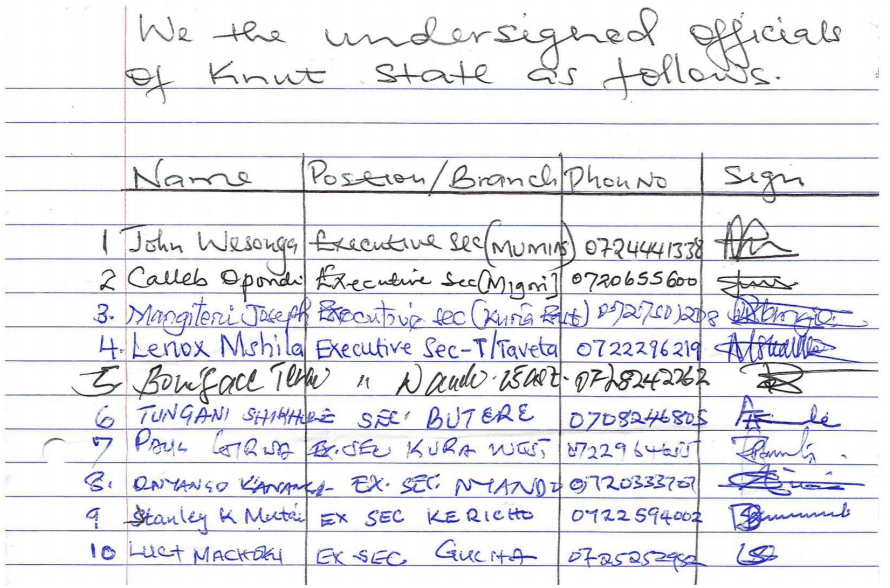 We the undersigned officials
of Knut State as follows.
Name Position/Branch Phon No Sign
1 John Wesonga Executive Sec (MUMIAS) 0724441338
2 Calleb Opondi Executive Sec (Migri) 0720655600
3. Mangiteni Joseph Executive sec (Kuria East)
4. Lenox Mshila Executive Sec-T/Taveta 0722296219
5 Boniface " Nandi East. 0728242262
6 TUNGANI SEC. BUTERE 0708246805
7 PAUL EX. SEC KURA WEST
8. ONYANGO EX. SEC. NYANDO 0720333707
9 Stanley K Mutai EX SEC KERICHO 0722594002
10 EX SEC. GUCHA 0725252982